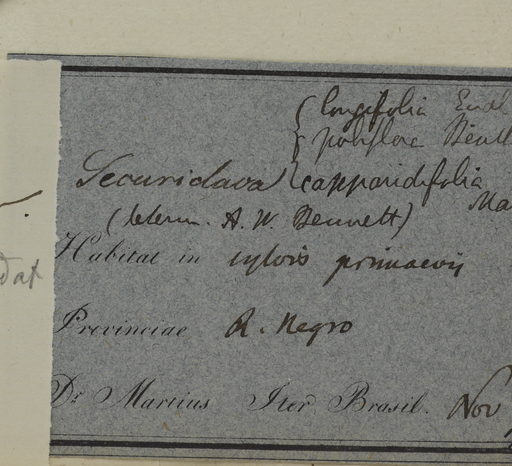 longifolia
Bennett
Securidaca capparidifolia Ma
(determ. A. W. Bennett)
Habitat in sylvis primaevis
Provinciae R. Negro
Dr Martius Iter Brasil. Nov